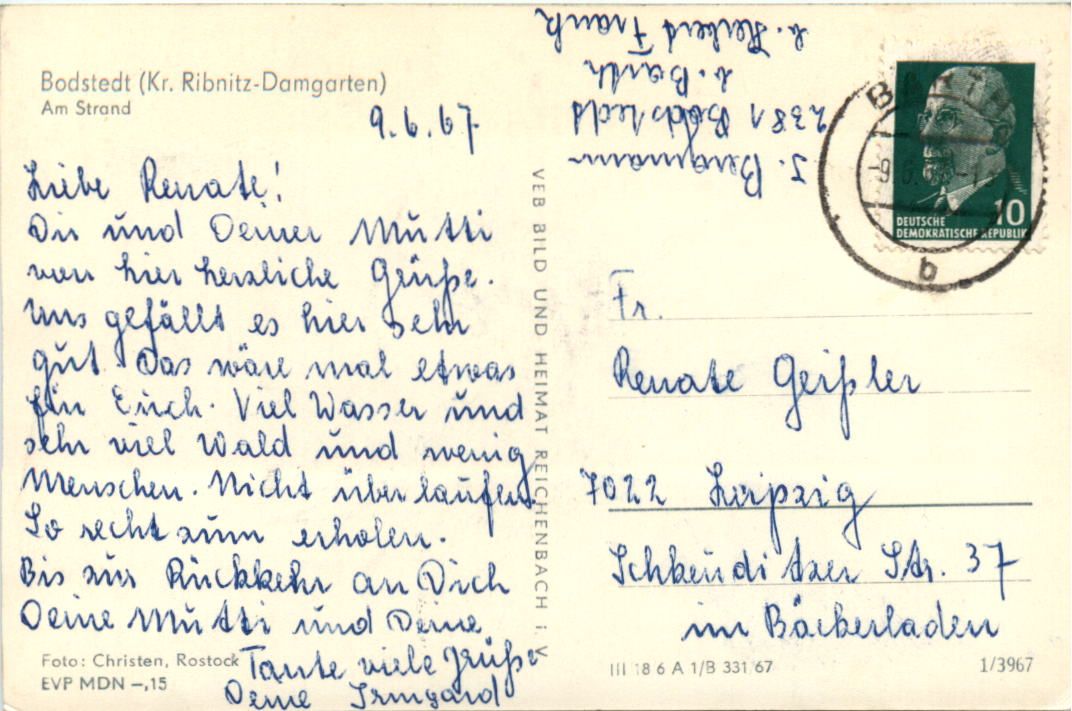 Bodstedt (Kr. Ribnitz-Damgarten)
Am Strand
9.6.67
Liebe Renate!
Dir und Deiner Mutti
von hier herzliche Grüße.
Uns gefällt es hier sehr
gut. Das wäre mal etwas
für Euch. Viel Wasser und
sehr viel Wald und wenig
Menschen. Nicht überlaufen.
So recht zum erholen.
Bis zur Rückkehr an Dich
Deine Mutti und Deine
Tante viele Grüße
Deine Irmgard
Foto: Christen, Rostock
EVP MDN –,15
VEB BILD UND HEIMAT REICHENBACH i. V.
I. Bergmann
2381 Bodstedt
b. Barth
b. Herbert Frank
BARTH
-9.6.
b
10
DEUTSCHE
DEMOKRATISCHE REPUBLIK
Fr.
Renate Geißler
7022 Leipzig
Schkeuditzer Str. 37
im Bäckerladen
III 18 6 A 1/B 331/67
1/3967